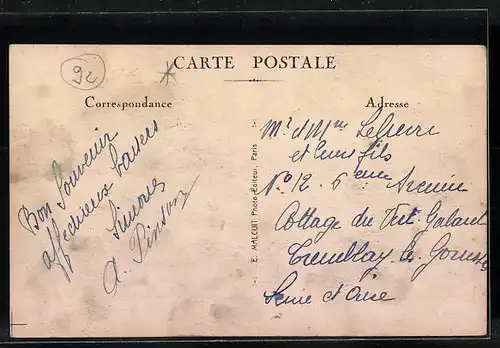 92
CARTE POSTALE
Correspondance
Adresse
Bon Souvenir
affectueux baisers
Simone
A. Pinson
E. MALCUIT Photo-Éditeur, Paris
Mr et Mme Lefievre
et leurs fils
No 12. 6eme Avenue
Cottage du Vert Galant
Tremblay les Gonesse
Seine et Oise